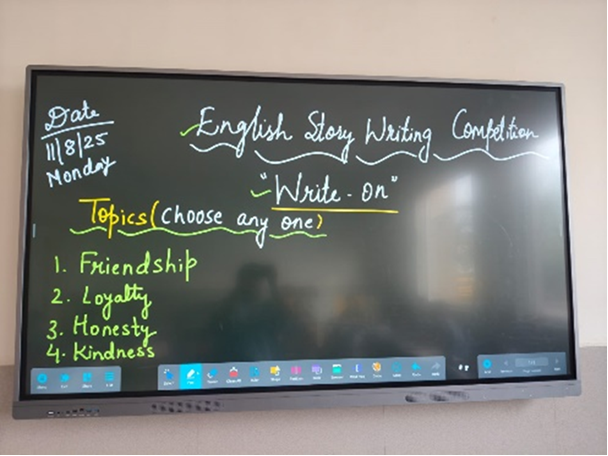 Date
11/8/25
Monday
English Story Writing Competition
"Write-on"
Topics (Choose any one)
1. Friendship
2. Loyalty
3. Honesty
4. Kindness